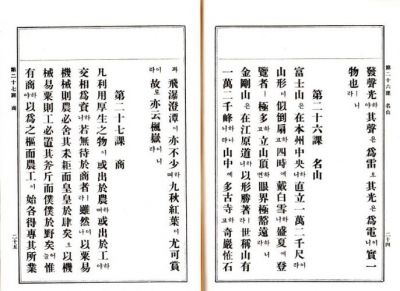 第二十六課 名山
二十四
發聲光하야其聲은為雷오其光은為電이니實一
物也ㅣ니라
第二十六課 名山
富士山은在本州中央하니直立一萬二千尺이라
山形이似倒扇고四時에戴白雪하니盛夏에登
覽者ㅣ極多하고立山頂면眼界極豁遠이라
金剛山은在江原道하니以形勝著이라世稱山有
一萬二千峰이라하나니山中에多古寺하고奇巖恠石
과飛瀑澄潭이亦不少하며九秋紅葉이尤可賞
이라故로亦云楓嶽이라
第二十七課 商
凡利用厚生之物이或出於農하며或出於工하야
交相為資하니若無待於商者라雖然이나以粟易
機械則農必舍其耒耟而皇皇於肆矣오以機
械易粟則工必置其斧斤而僕僕於野矣리니惟
有商하야以為之樞而農工이始各得專其所業
第二十七課 商
二十五